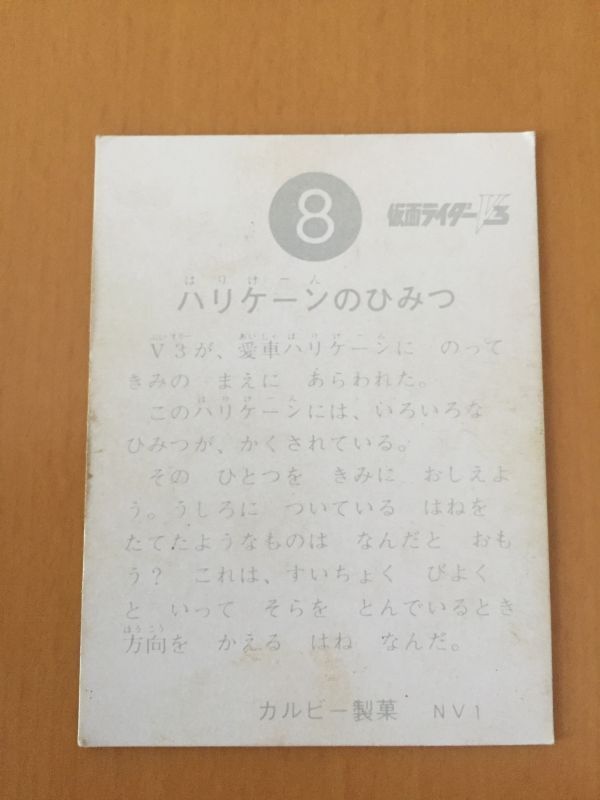 8
仮面ライダーV3
はりけーん
ハリケーンのひみつ
ぶいすりー あいしゃはりけーん
V3が、愛車ハリケーンに のって
きみの まえに あらわれた。
はりけーん
このハリケーンには、いろいろな
ひみつが、かくされている。
その ひとつを きみに おしえよ
う。うしろに ついている はねを
たてたようなものは なんだと おも
う? これは、すいちょく びよく
と いって そらを とんでいるとき
ほうこう
方向を かえる はね なんだ。
カルビー製菓 NV1